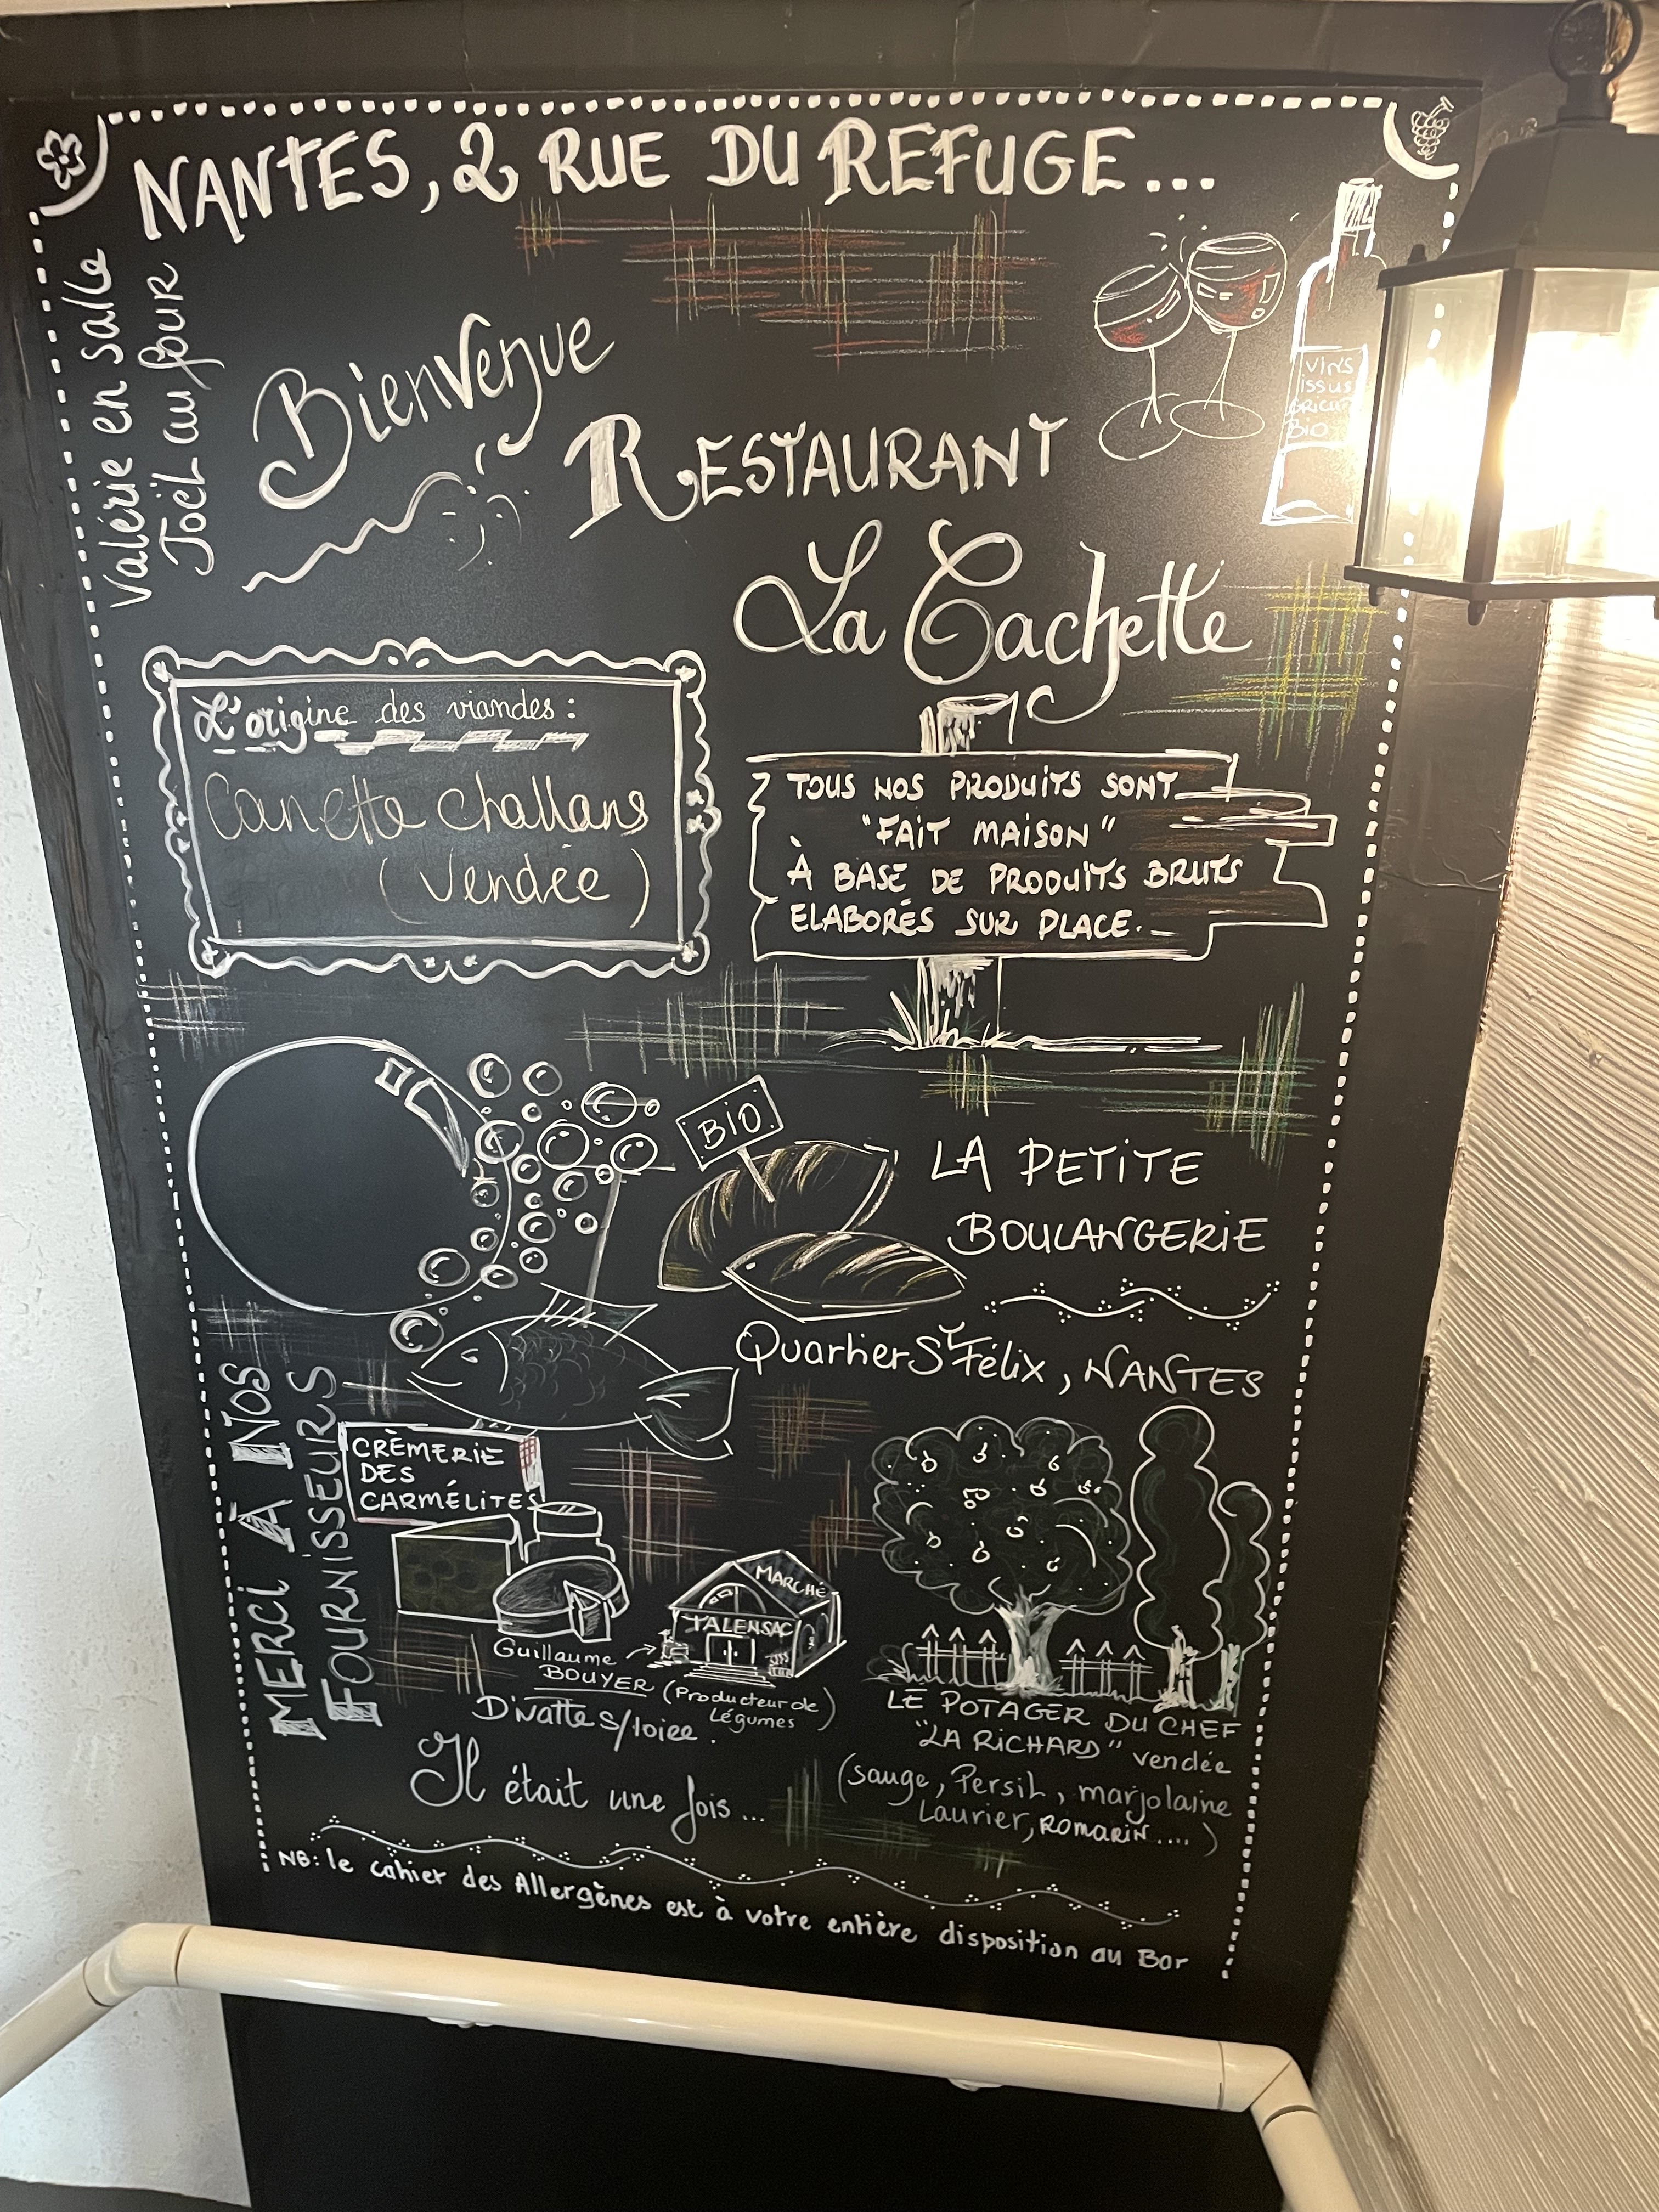 NANTES, 2 RUE DU REFUGE...
Valérie en salle
Joël au four
Bienvenue
RESTAURANT
La Cachette
vins
issus
Bio
L'origine des viandes :
Canette challans
(Vendée)
TOUS NOS PRODUITS SONT
"FAIT MAISON"
À BASE DE PRODUITS BRUTS
ELABORÉS SUR PLACE.
BIO
LA PETITE
BOULANGERIE
Quartier St Félix, NANTES
MERCI À NOS
FOURNISSEURS
CRÈMERIE
DES
CARMÉLITES
MARCHÉ
TALENSAC
Guillaume
BOUYER (Producteur de
Légumes)
Divatte S/loire.
LE POTAGER DU CHEF
"LA RICHARD" vendée
(sauge, Persil, marjolaine
Laurier, ROMARIN....)
Il était une fois...
NB: le cahier des Allergènes est à votre entière disposition au Bar